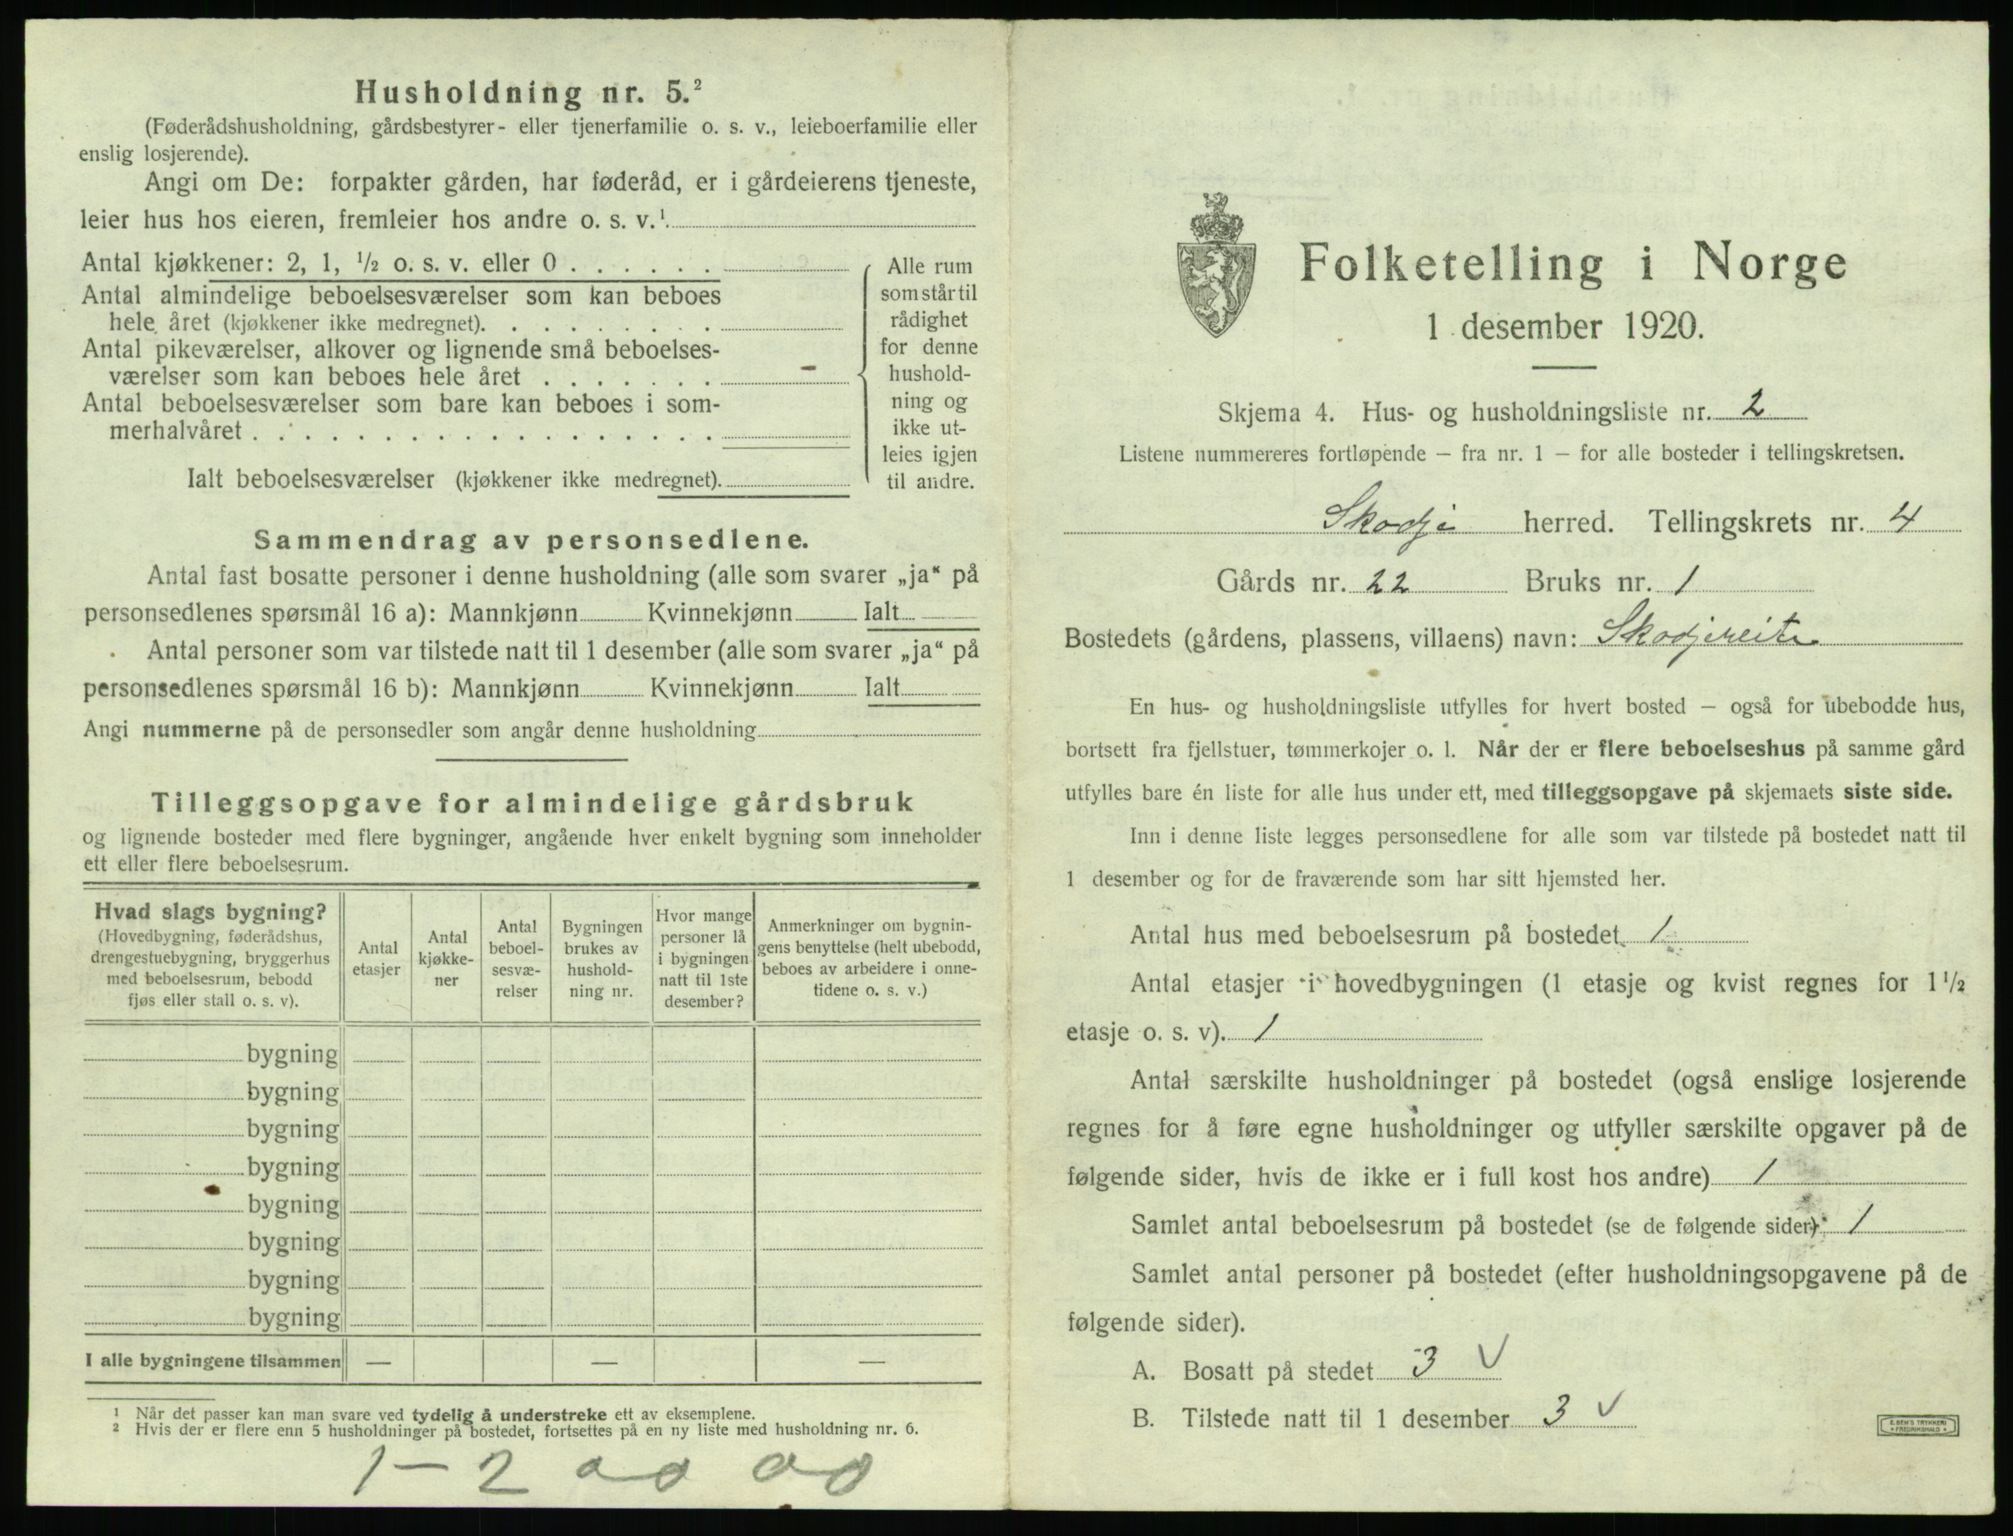 Husholdning nr. 5.²
(Føderådshusholdning, gårdsbestyrer- eller tjenerfamilie o. s. v., leieboerfamilie eller
enslig losjerende).
Angi om De: forpakter gården, har føderåd, er i gårdeierens tjeneste,
leier hus hos eieren, fremleier hos andre o. s. v.¹
Antal kjøkkener: 2, 1, ½ o. s. v. eller 0 . . . . . .
Antal almindelige beboelsesværelser som kan beboes
hele året (kjøkkener ikke medregnet). . . . . . . . .
Antal pikeværelser, alkover og lignende små beboelses-
værelser som kan beboes hele året . . . . . . .
Antal beboelsesværelser som bare kan beboes i som-
merhalvåret . . . . . . . . . . . . . . . . . .
Ialt beboelsesværelser (kjøkkener ikke medregnet).
Alle rum
som står til
rådighet
for denne
hushold-
ning og
ikke ut-
leies igjen
til andre.
Sammendrag av personsedlene.
Antal fast bosatte personer i denne husholdning (alle som svarer „ja“ på
personsedlenes spørsmål 16 a): Mannkjønn Kvinnekjønn Ialt
Antal personer som var tilstede natt til 1 desember (alle som svarer „ja“ på
personsedlenes spørsmål 16 b): Mannkjønn Kvinnekjønn Ialt
Angi nummerne på de personsedler som angår denne husholdning
Tilleggsopgave for almindelige gårdsbruk
og lignende bosteder med flere bygninger, angående hver enkelt bygning som inneholder
ett eller flere beboelsesrum.
Hvad slags bygning?
(Hovedbygning, føderådshus,
drengestuebygning, bryggerhus
med beboelsesrum, bebodd
fjøs eller stall o. s. v).
Antal
etasjer
Antal
kjøkke-
ner
Antal
beboel-
sesvæ-
relser
Bygningen
brukes av
hushold-
ning nr.
Hvor mange
personer lå
i bygningen
natt til 1ste
desember?
Anmerkninger om bygnin-
gens benyttelse (helt ubebodd,
beboes av arbeidere i onne-
tidene o. s. v.)
bygning
bygning
bygning
bygning
bygning
bygning
bygning
bygning
I alle bygningene tilsammen — — —
¹ Når det passer kan man svare ved tydelig å understreke ett av eksemplene.
² Hvis der er flere enn 5 husholdninger på bostedet, fortsettes på en ny liste med husholdning nr. 6.
1 – 2 00 00
Folketelling i Norge
1 desember 1920.
Skjema 4. Hus- og husholdningsliste nr. 2
Listene nummereres fortløpende – fra nr. 1 – for alle bosteder i tellingskretsen.
Skodje herred. Tellingskrets nr. 4
Gårds nr. 22 Bruks nr. 1
Bostedets (gårdens, plassens, villaens) navn: Skodjereite
En hus- og husholdningsliste utfylles for hvert bosted – også for ubebodde hus,
bortsett fra fjellstuer, tømmerkojer o. l. Når der er flere beboelseshus på samme gård
utfylles bare én liste for alle hus under ett, med tilleggsopgave på skjemaets siste side.
Inn i denne liste legges personsedlene for alle som var tilstede på bostedet natt til
1 desember og for de fraværende som har sitt hjemsted her.
Antal hus med beboelsesrum på bostedet 1
Antal etasjer i hovedbygningen (1 etasje og kvist regnes for 1½
etasje o. s. v). 1
Antal særskilte husholdninger på bostedet (også enslige losjerende
regnes for å føre egne husholdninger og utfyller særskilte opgaver på de
følgende sider, hvis de ikke er i full kost hos andre) 1
Samlet antal beboelsesrum på bostedet (se de følgende sider) 1
Samlet antal personer på bostedet (efter husholdningsopgavene på de
følgende sider).
A. Bosatt på stedet 3 V
B. Tilstede natt til 1 desember 3 V
E. SEM'S TRYKKERI
FREDRIKSHALD